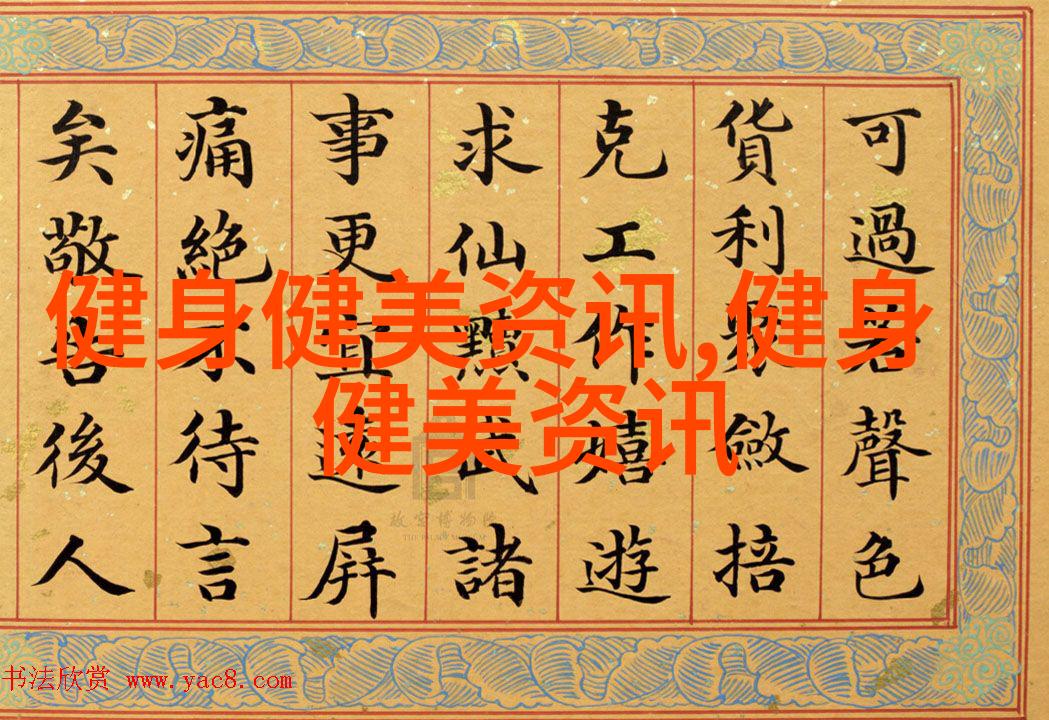 可過若聲色
貨利聚斂掊
克工作嬉遊
求仙黷武諸
事更宜遠屏
痛絕不待言
矣敬後人
健身健美资讯,健身
健美资讯
故宫博物院
THE PALACE MUSEUM
书法欣赏 www.yac8.com